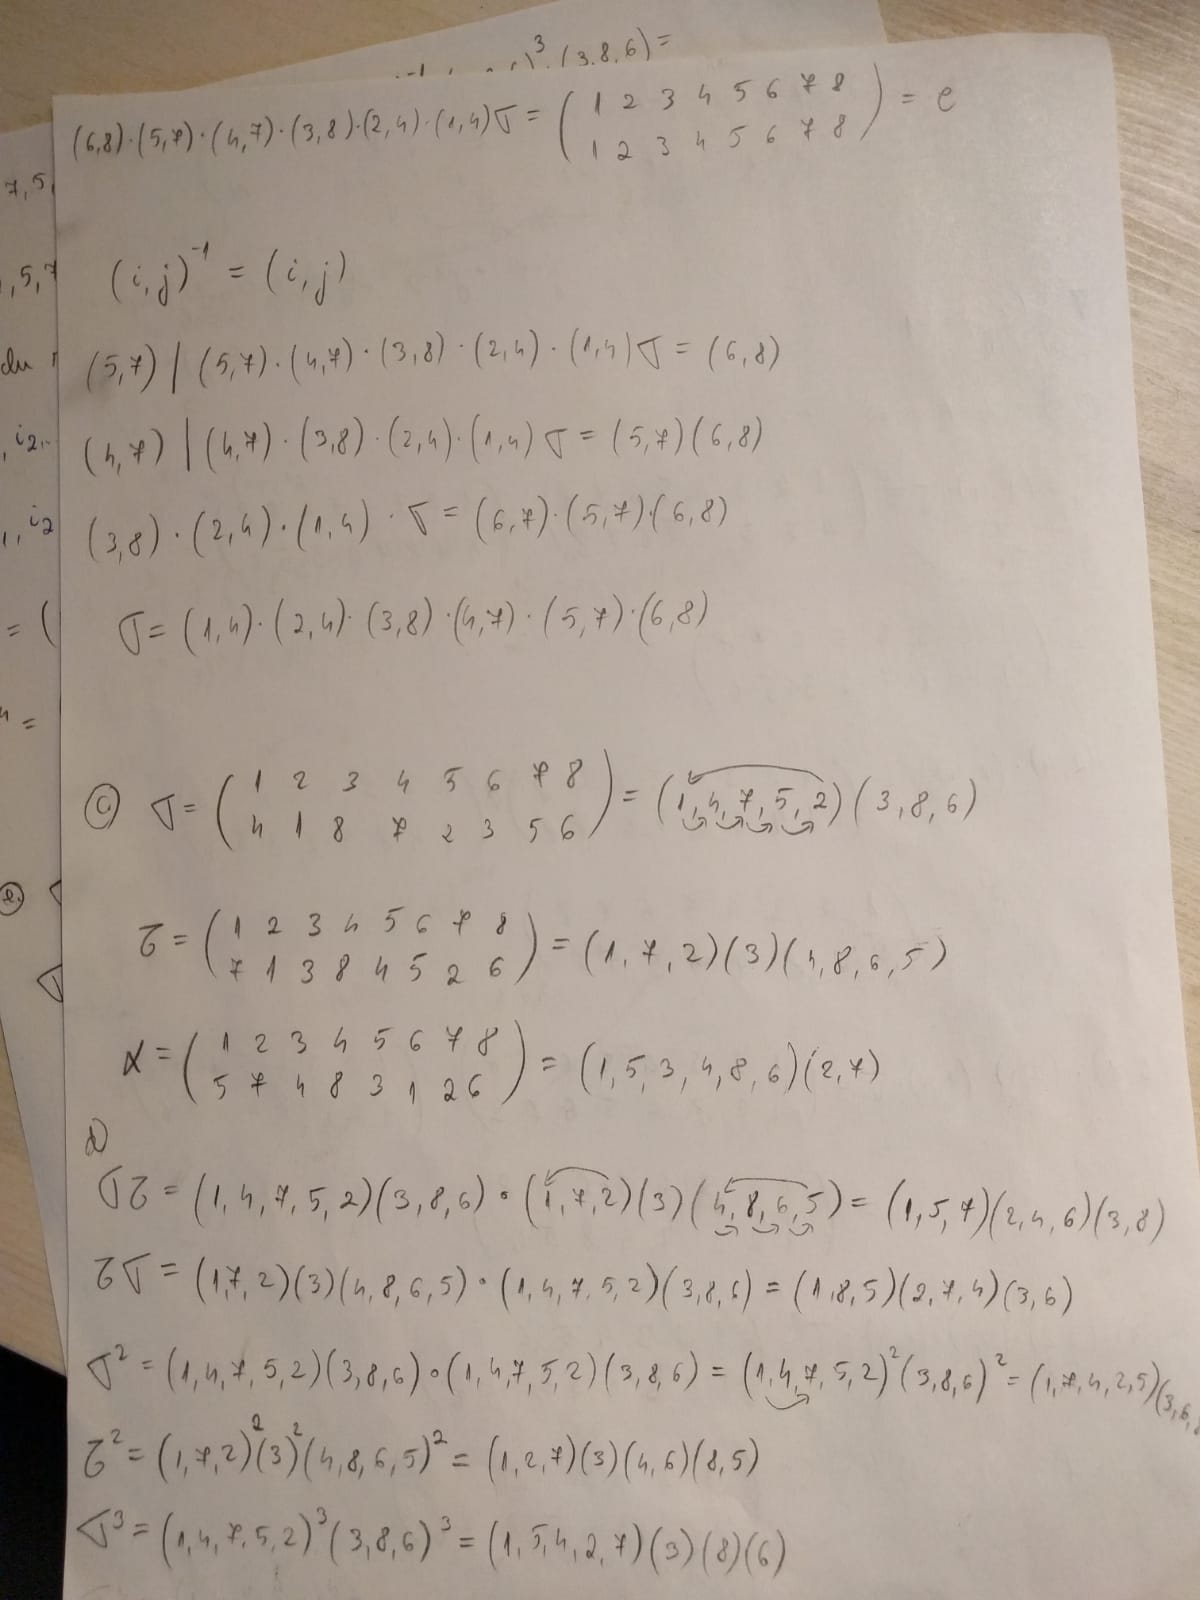 )³·(3,8,6)=
(6,8)·(5,7)·(4,7)·(3,8)·(2,4)·(1,4)σ = ( 1 2 3 4 5 6 7 8 ) = e
1 2 3 4 5 6 7 8
7,5,
(i,j)⁻¹ = (i,j)
,5,7
(5,7) | (5,7)·(4,7)·(3,8)·(2,4)·(1,4)σ = (6,8)
du
(4,7) | (4,7)·(3,8)·(2,4)·(1,4)σ = (5,7)(6,8)
, i2..
(3,8)·(2,4)·(1,4)·σ = (6,7)·(5,7)·(6,8)
, i2
σ = (1,4)·(2,4)·(3,8)·(4,7)·(5,7)·(6,8)
= (
=
c) σ = ( 1 2 3 4 5 6 7 8 ) = (1,4,7,5,2)(3,8,6)
4 1 8 7 2 3 5 6
τ = ( 1 2 3 4 5 6 7 8 ) = (1,7,2)(3)(4,8,6,5)
7 1 3 8 4 5 2 6
α = ( 1 2 3 4 5 6 7 8 ) = (1,5,3,4,8,6)(2,7)
5 7 4 8 3 1 2 6
d)
στ = (1,4,7,5,2)(3,8,6)∘(1,7,2)(3)(4,8,6,5) = (1,5,7)(2,4,6)(3,8)
τσ = (1,7,2)(3)(4,8,6,5)·(1,4,7,5,2)(3,8,6) = (1,8,5)(2,7,4)(3,6)
σ² = (1,4,7,5,2)(3,8,6)∘(1,4,7,5,2)(3,8,6) = (1,4,7,5,2)²(3,8,6)² = (1,7,4,2,5)(3,6,
τ² = (1,7,2)²(3)²(4,8,6,5)² = (1,2,7)(3)(4,6)(8,5)
σ³ = (1,4,7,5,2)³(3,8,6)³ = (1,5,4,2,7)(3)(8)(6)